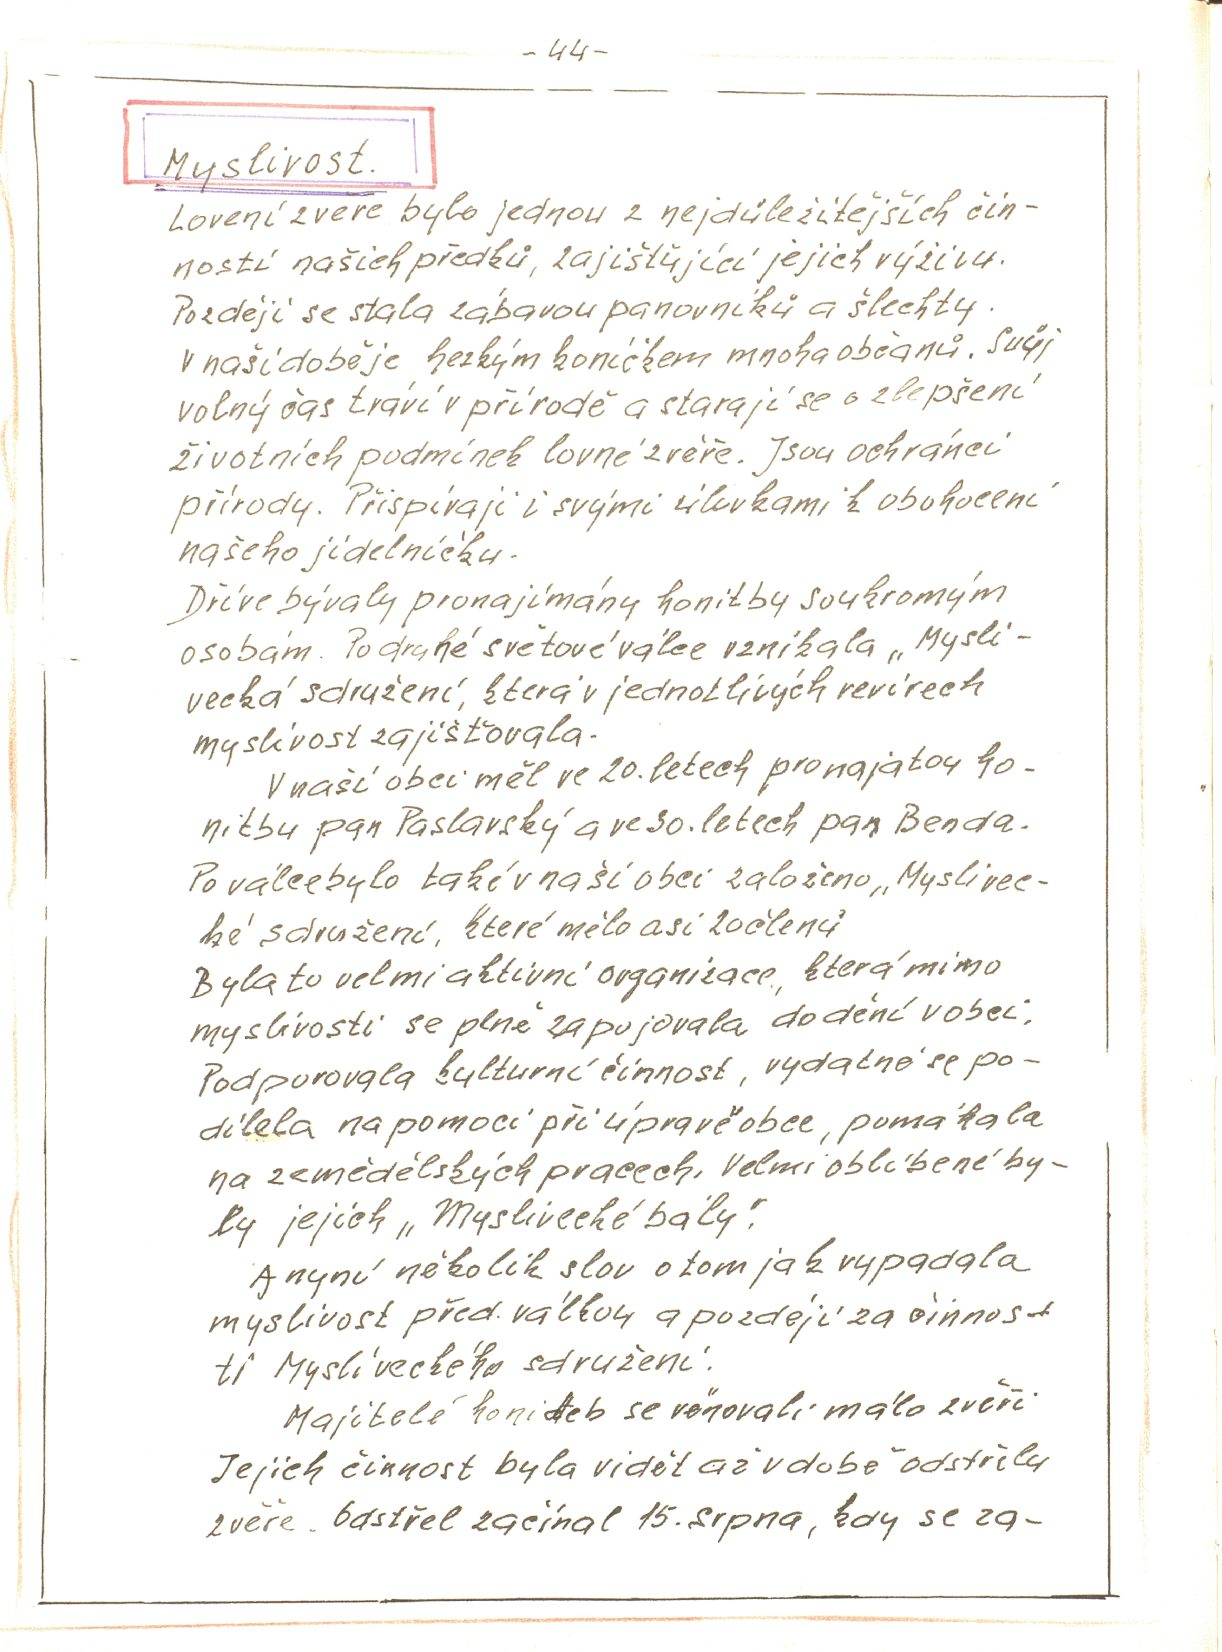 - 44 -
Myslivost.
Lovení zvěře bylo jednou z nejdůležitějších čin-
ností našich předků, zajišťující jejich výživu.
Později se stala zábavou panovníků a šlechty.
V naší době je hezkým koníčkem mnoha občanů. Svůj
volný čas tráví v přírodě a starají se o zlepšení
životních podmínek lovné zvěře. Jsou ochránci
přírody. Přispívají i svými úlovkami k obohocení
našeho jídelníčku.
Dříve bývaly pronajímány honitby soukromým
osobám. Po druhé světové válce vznikala „Mysli-
vecká sdružení, která v jednotlivých revírech
myslivost zajišťovala.
V naší obci měl ve 20. letech pronajatou ho-
nitbu pan Paslavský a ve 30. letech pan Benda.
Po válce bylo také v naší obci založeno „Myslivec-
ké sdružení, které mělo asi 20 členů
Byla to velmi aktivní organizace, která mimo
myslivosti se plně zapojovala do dění v obci.
Podporovala kulturní činnost, vydatně se po-
dílela na pomoci při úpravě obce, pomáhala
na zemědělských pracech. Velmi oblíbené by-
ly jejich „Myslivecké bály".
A nyní několik slov o tom jak vypadala
myslivost před válkou a později za činnos-
ti Mysliveckého sdružení.
Majitelé honiteb se věnovali málo zvěři
Jejich činnost byla vidět až v době odstřelu
zvěře. Odstřel začínal 15. srpna, kdy se za-